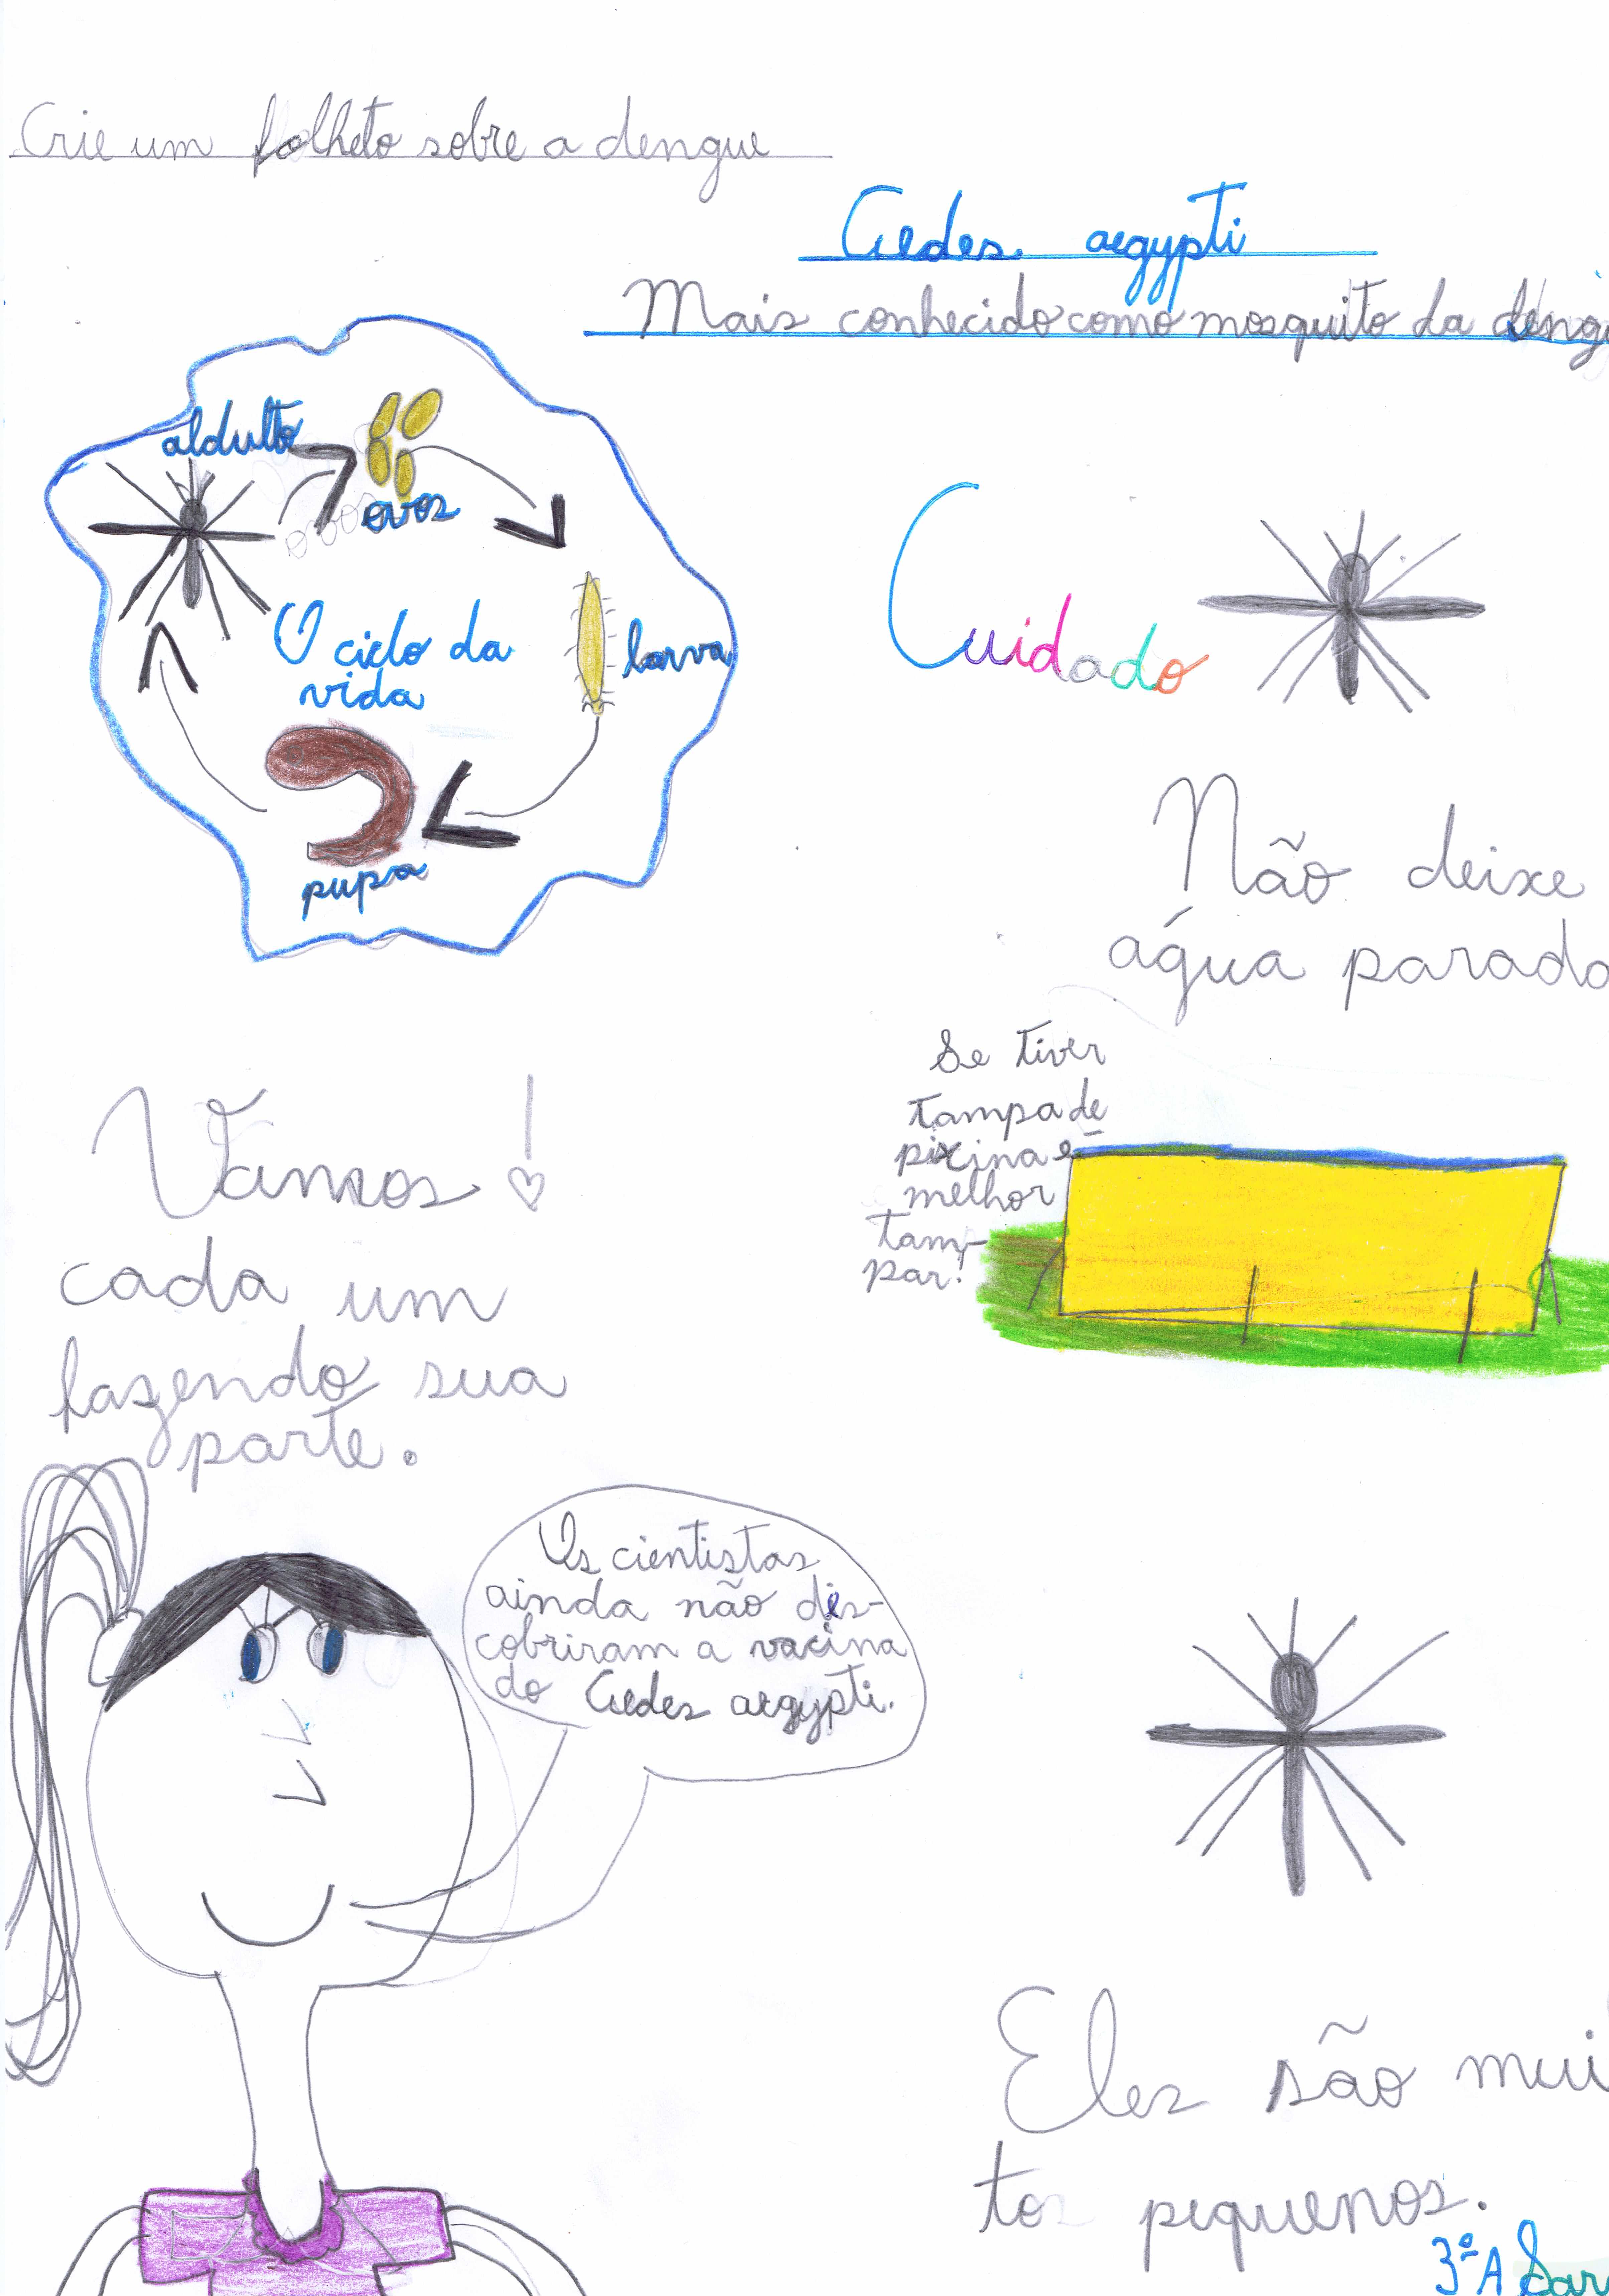 Crie um folheto sobre a dengue
Aedes aegypti
Mais conhecido como mosquito da deng
aldulto
ovos
O ciclo da
vida
larva
pupa
Cuidado
Não deixe
água parada
Se tiver
tampa de
pixcina é
melhor
tam-
par!
Vamos!
cada um
fazendo sua
parte.
Os cientistas
ainda não dis-
cobriram a vacina
do Aedes aegypti.
Eles são mui
tos piquenos.
3ª A Sar